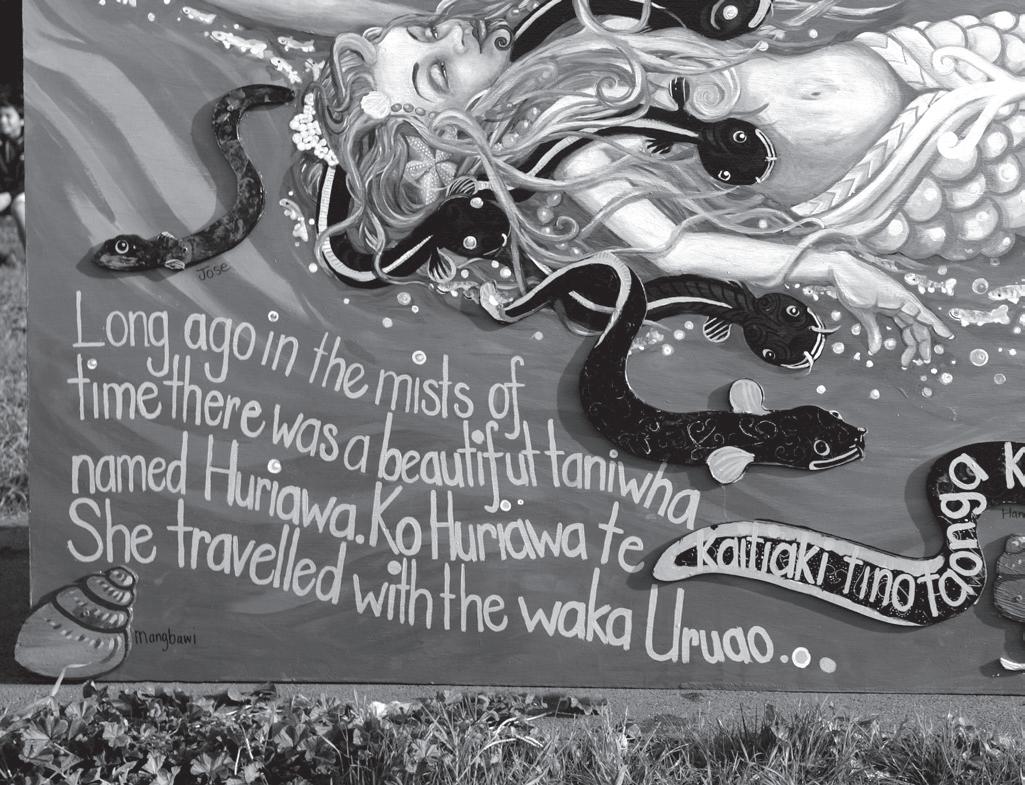 Jose
Long ago in the mists of
time there was a beautifut taniwha
named Huriawa. Ko Huriawa te
kaitiaki tino taonga K
She travelled with the waka Uruao...
mangbawi